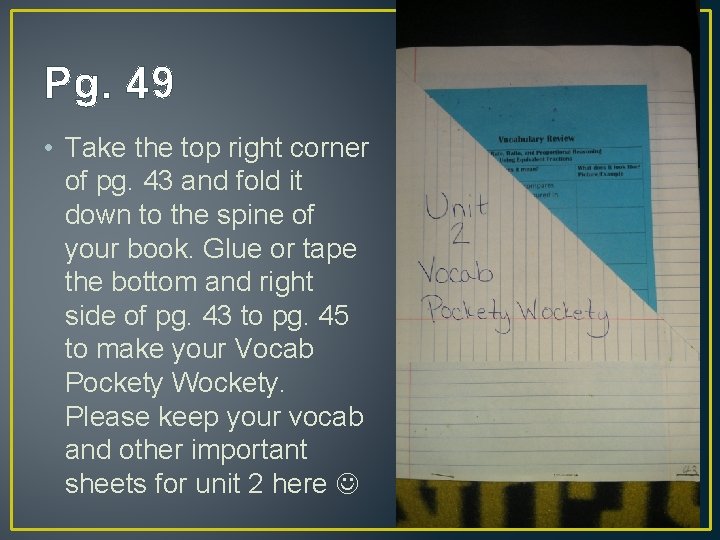 Pg. 49
• Take the top right corner
of pg. 43 and fold it
down to the spine of
your book. Glue or tape
the bottom and right
side of pg. 43 to pg. 45
to make your Vocab
Pockety Wockety.
Please keep your vocab
and other important
sheets for unit 2 here ☺
Vocabulary Review
Rate, Ratio, and Proportional Reasoning
Using Equivalent Fractions
it mean?
What does it look like?
Picture/Example
compares
in
Unit
2
Vocab
Pockety Wockety
43